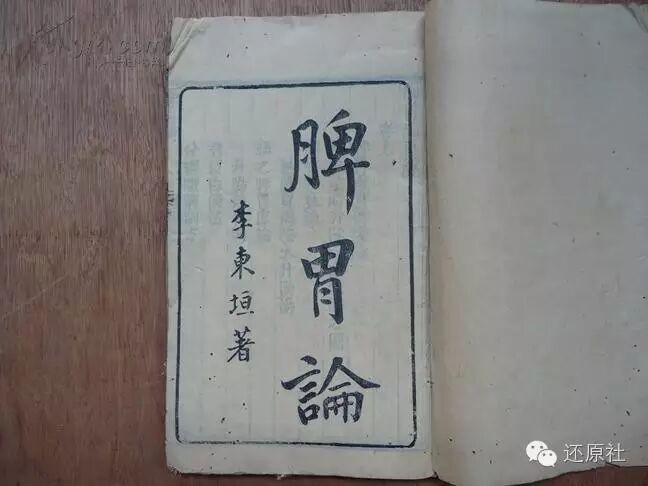 脾胃論
李東垣著
还原社